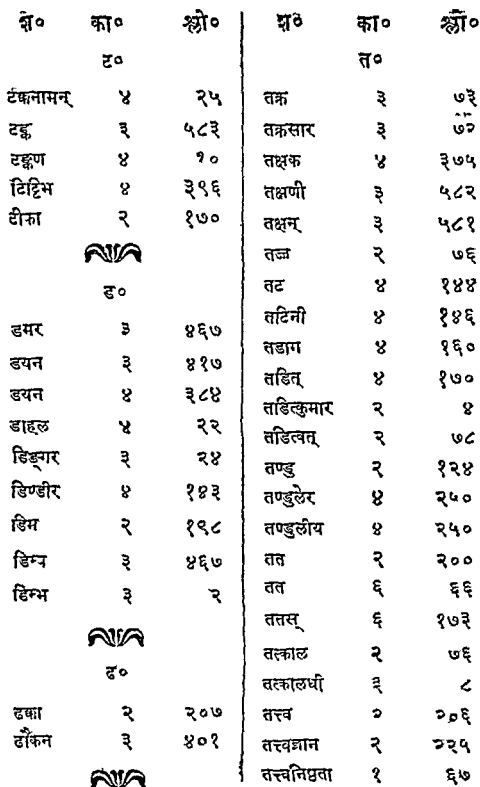 श० का० श्लो०
ट०
टक्कनामन् ४ २५
टङ्क ३ ५८३
टङ्कण ४ १०
टिट्टिभ ४ ३९६
टीका २ १७०
ड०
डमर ३ ४६७
डयन ३ ४१७
डयन ४ ३८४
डाहल ४ २२
डिङ्गर ३ २४
डिण्डीर ४ १४३
डिम २ १९८
डिम्ब ३ ४६७
डिम्भ ३ २
ढ०
ढक्का २ २०७
ढौकन ३ ४०१
श० का० श्लो०
त०
तक्र ३ ७३
तक्रसार ३ ७२
तक्षक ४ ३७५
तक्षणी ३ ५८२
तक्षन् ३ ५८१
तज्ज २ ७६
तट ४ १४४
तटिनी ४ १४६
तडाग ४ १६०
तडित् ४ १७०
तडित्कुमार २ ४
तडित्वत् २ ७८
तण्डु २ १२४
तण्डुलेर ४ २५०
तण्डुलीय ४ २५०
तत २ २००
तत ६ ६६
ततस् ६ १७३
तत्काल २ ७६
तत्कालधी ३ ८
तत्त्व २ २०६
तत्त्वज्ञान २ २२५
तत्त्वनिष्ठता १ ६७